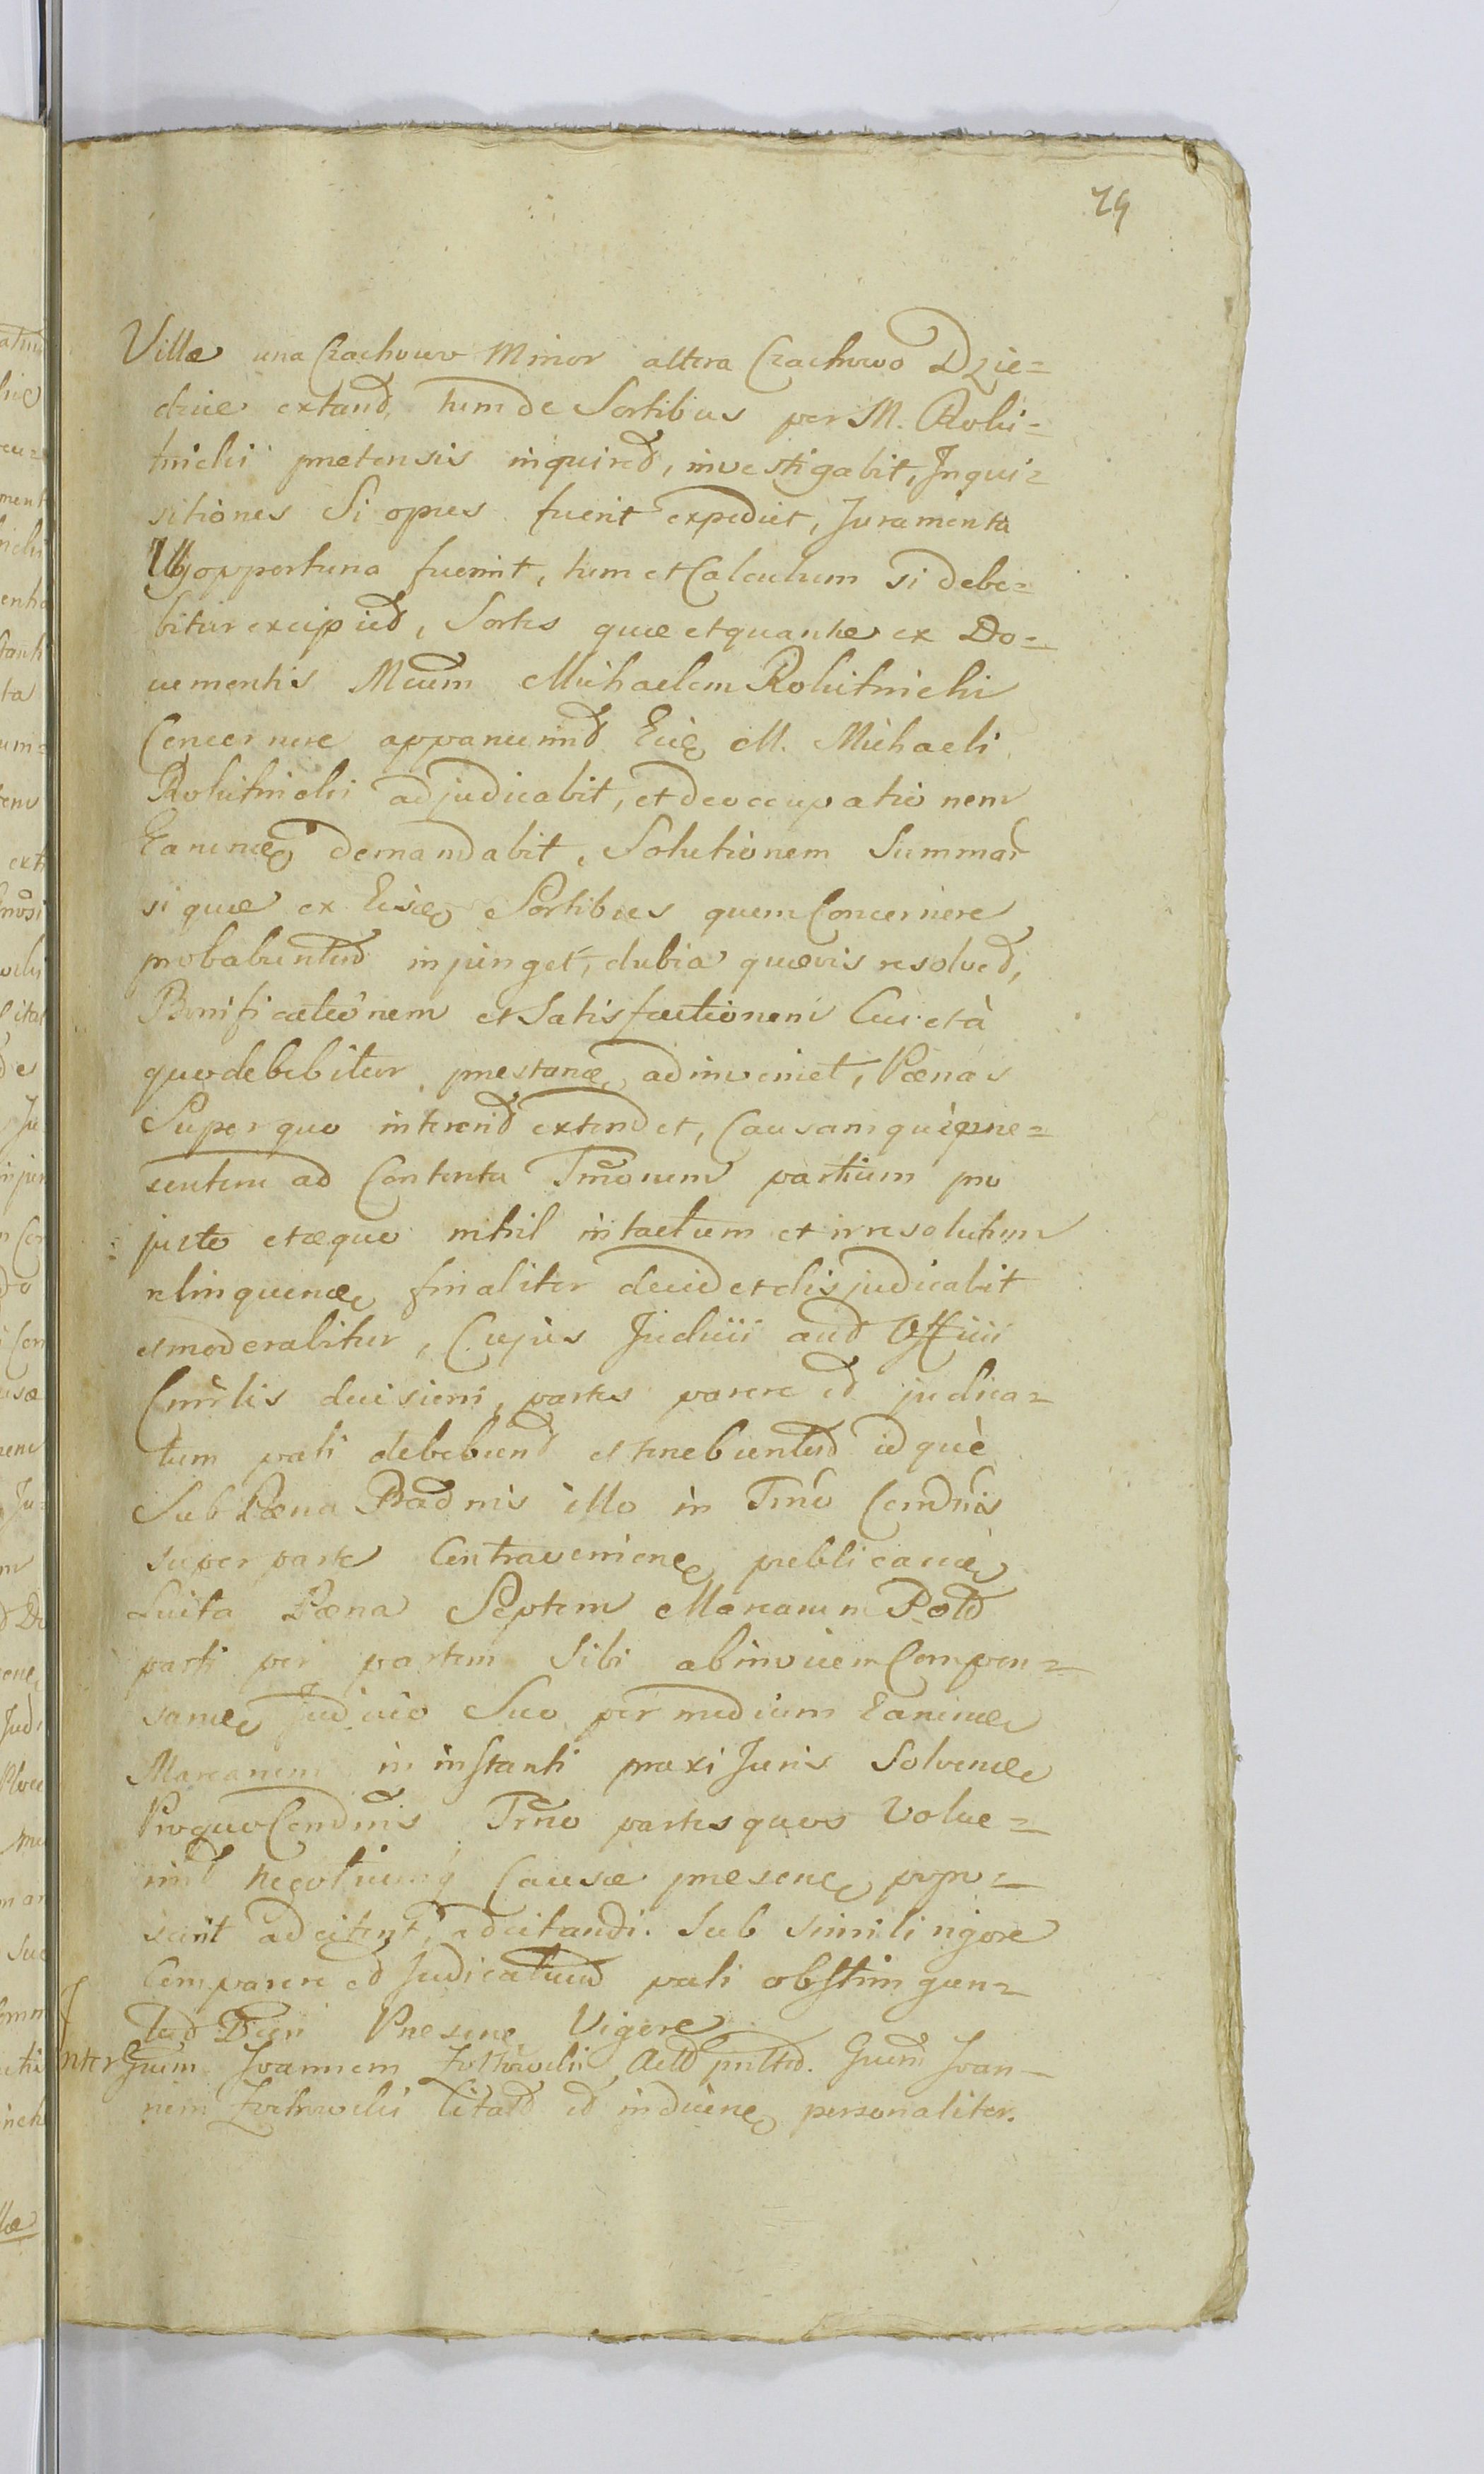 79
Villæ una Czachowo Minor altera Czachowo Dzie=
dzice extand, tum de Sortibus per M. Rokit=
nicki prætensis inquired, investigabit, Inqui=
sitiones Si opus fuerit expediet, Juramenta
Ubj opportuna fuerint, tum et Calculum si debe=
bitur excipied, Sortes quæ et quantæ ex Do=
cumentis Mcum Michaelem Rokitnicki
Concernere apparuerind Eidę M. Michaeli
Rokitnicki adjudicabit, et deoccupationem
Earundę demandabit, Solutionem Summar
si quæ ex Eisdę Sortibus quem Concernere
probabuntud injunget, dubia quævis resolved,
Bonificationem et Satisfactionem Cui et à
quo debebitur præstandę adinveniet, Pænas
Super quo intererid extendet, Causamquè præ=
sentem ad Contenta Trnorum partium pro
juste et æquo nihil intactum et irresolutum
relinquendę finaliter decidet disjudicabit
et moderabitur, Cujus Judicii aud Officii
Cmrlis decisioni, partes parere ed judica=
tum pati debebund et tenebuntud idquè
Sub Pæna Badnis illo in Trno Condnis
super parte Contravenienę publicandę
Luita Pæna Septem Marcarum Pold
parti per partem Sibi abinvicem Compen=
sandę Judicio Suo per medium Earundę
Marcarum in instanti praxi Juris Solvendę
Pro quo Condnis Trno partes quos Volue=
rind Negotiumq Causæ præsenę popo=
scerit adcitent, adcitandi Sub Simili rigore
Comparere ed Judicatum pati obstringun=
tud Dcri Præsenę Vigore
Inter Gnum Joannem Act Gnum Joan=
nem Citatd ed inducenę personaliter.